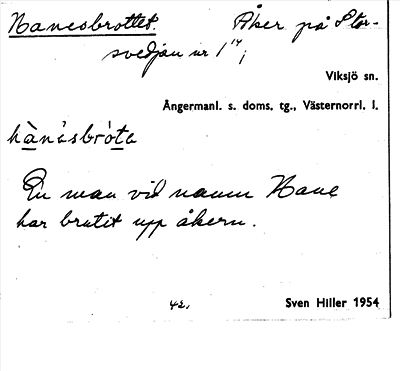 Hanesbrottet. Åker på Stor-
svedjan nr 1¹⁴;
Viksjö sn.
Ångermanl. s. doms. tg., Västernorrl. l.
hànəsbròtə
En man vid namn Hane
har brutit upp åkern.
42.
Sven Hiller 1954